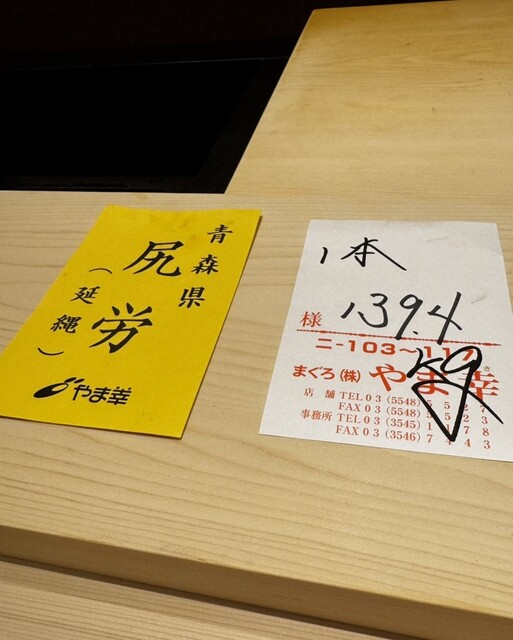 青森県
尻労
（延縄）
やま幸
1本
139.4
kg
様
ニ-103~117
まぐろ(株) やま幸
店舗 TEL03(5548)5527
FAX03(5548)5523
事務所 TEL03(3545)1178
FAX03(3546)7443